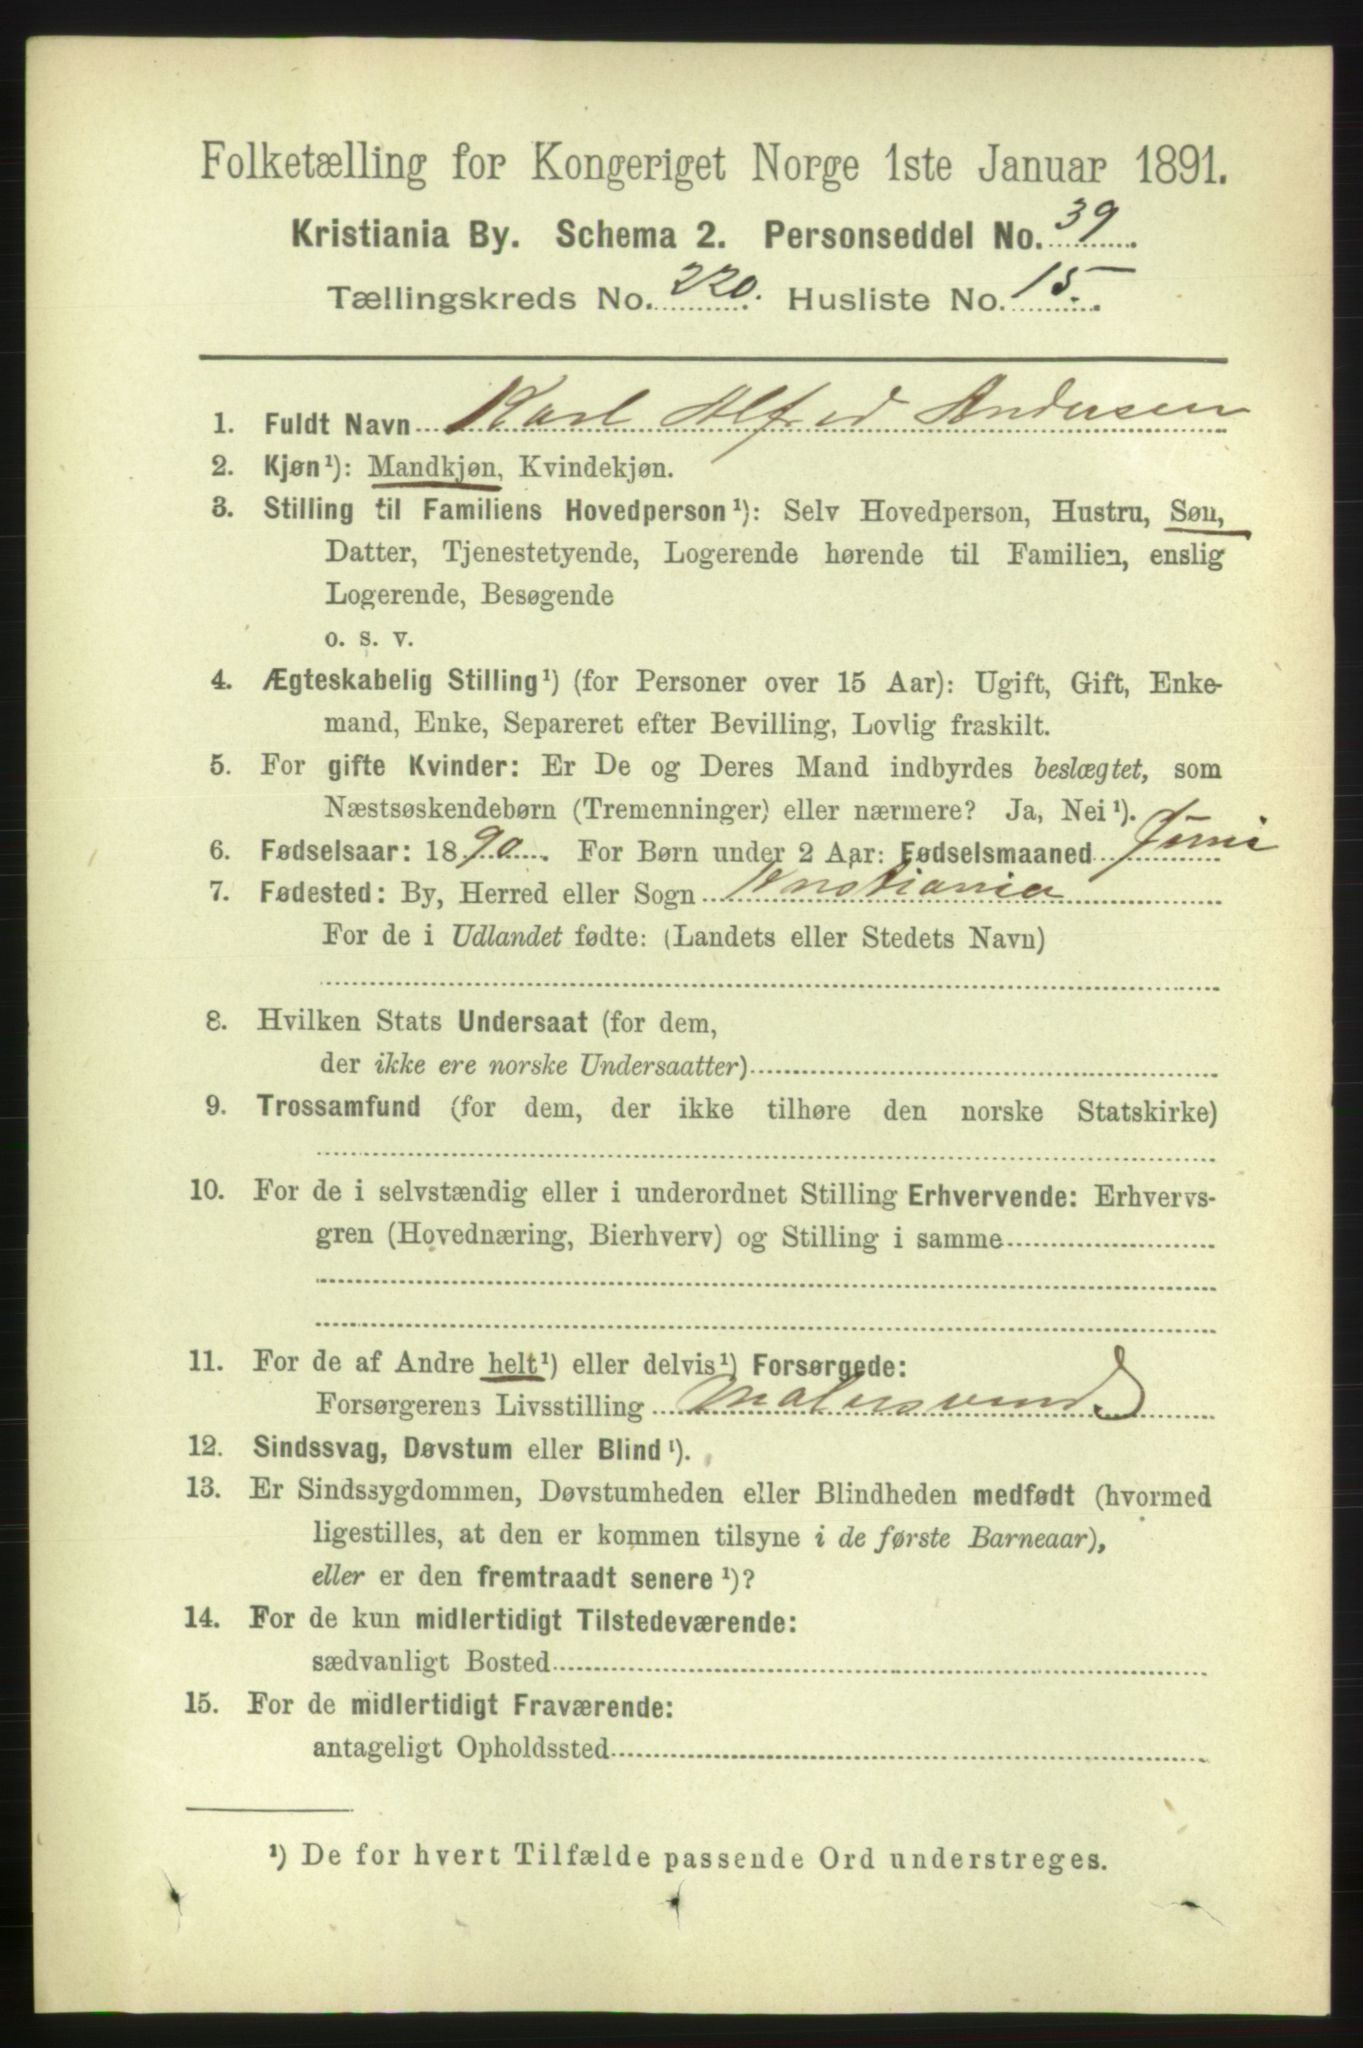 Folketælling for Kongeriget Norge 1ste Januar 1891.
Kristiania By. Schema 2. Personseddel No. 39
Tællingskreds No. 220. Husliste No. 15.
1. Fuldt Navn Karl Alfred Andersen
2. Kjøn¹): Mandkjøn, Kvindekjøn.
3. Stilling til Familiens Hovedperson¹): Selv Hovedperson, Hustru, Søn,
Datter, Tjenestetyende, Logerende hørende til Familien, enslig
Logerende, Besøgende
o. s. v.
4. Ægteskabelig Stilling¹) (for Personer over 15 Aar): Ugift, Gift, Enke-
mand, Enke, Separeret efter Bevilling, Lovlig fraskilt.
5. For gifte Kvinder: Er De og Deres Mand indbyrdes beslægtet, som
Næstsøskendebørn (Tremenninger) eller nærmere? Ja, Nei¹).
6. Fødselsaar: 1890. For Børn under 2 Aar: Fødselsmaaned Juni
7. Fødested: By, Herred eller Sogn Kristiania
For de i Udlandet fødte: (Landets eller Stedets Navn)
8. Hvilken Stats Undersaat (for dem,
der ikke ere norske Undersaatter)
9. Trossamfund (for dem, der ikke tilhøre den norske Statskirke)
10. For de i selvstændig eller i underordnet Stilling Erhvervende: Erhvervs-
gren (Hovednæring, Bierhverv) og Stilling i samme
11. For de af Andre helt¹) eller delvis¹) Forsørgede:
Forsørgerens Livsstilling Malersvend
12. Sindssvag, Døvstum eller Blind¹).
13. Er Sindssygdommen, Døvstumheden eller Blindheden medfødt (hvormed
ligestilles, at den er kommen tilsyne i de første Barneaar),
eller er den fremtraadt senere¹)?
14. For de kun midlertidigt Tilstedeværende:
sædvanligt Bosted
15. For de midlertidigt Fraværende:
antageligt Opholdssted
¹) De for hvert Tilfælde passende Ord understreges.